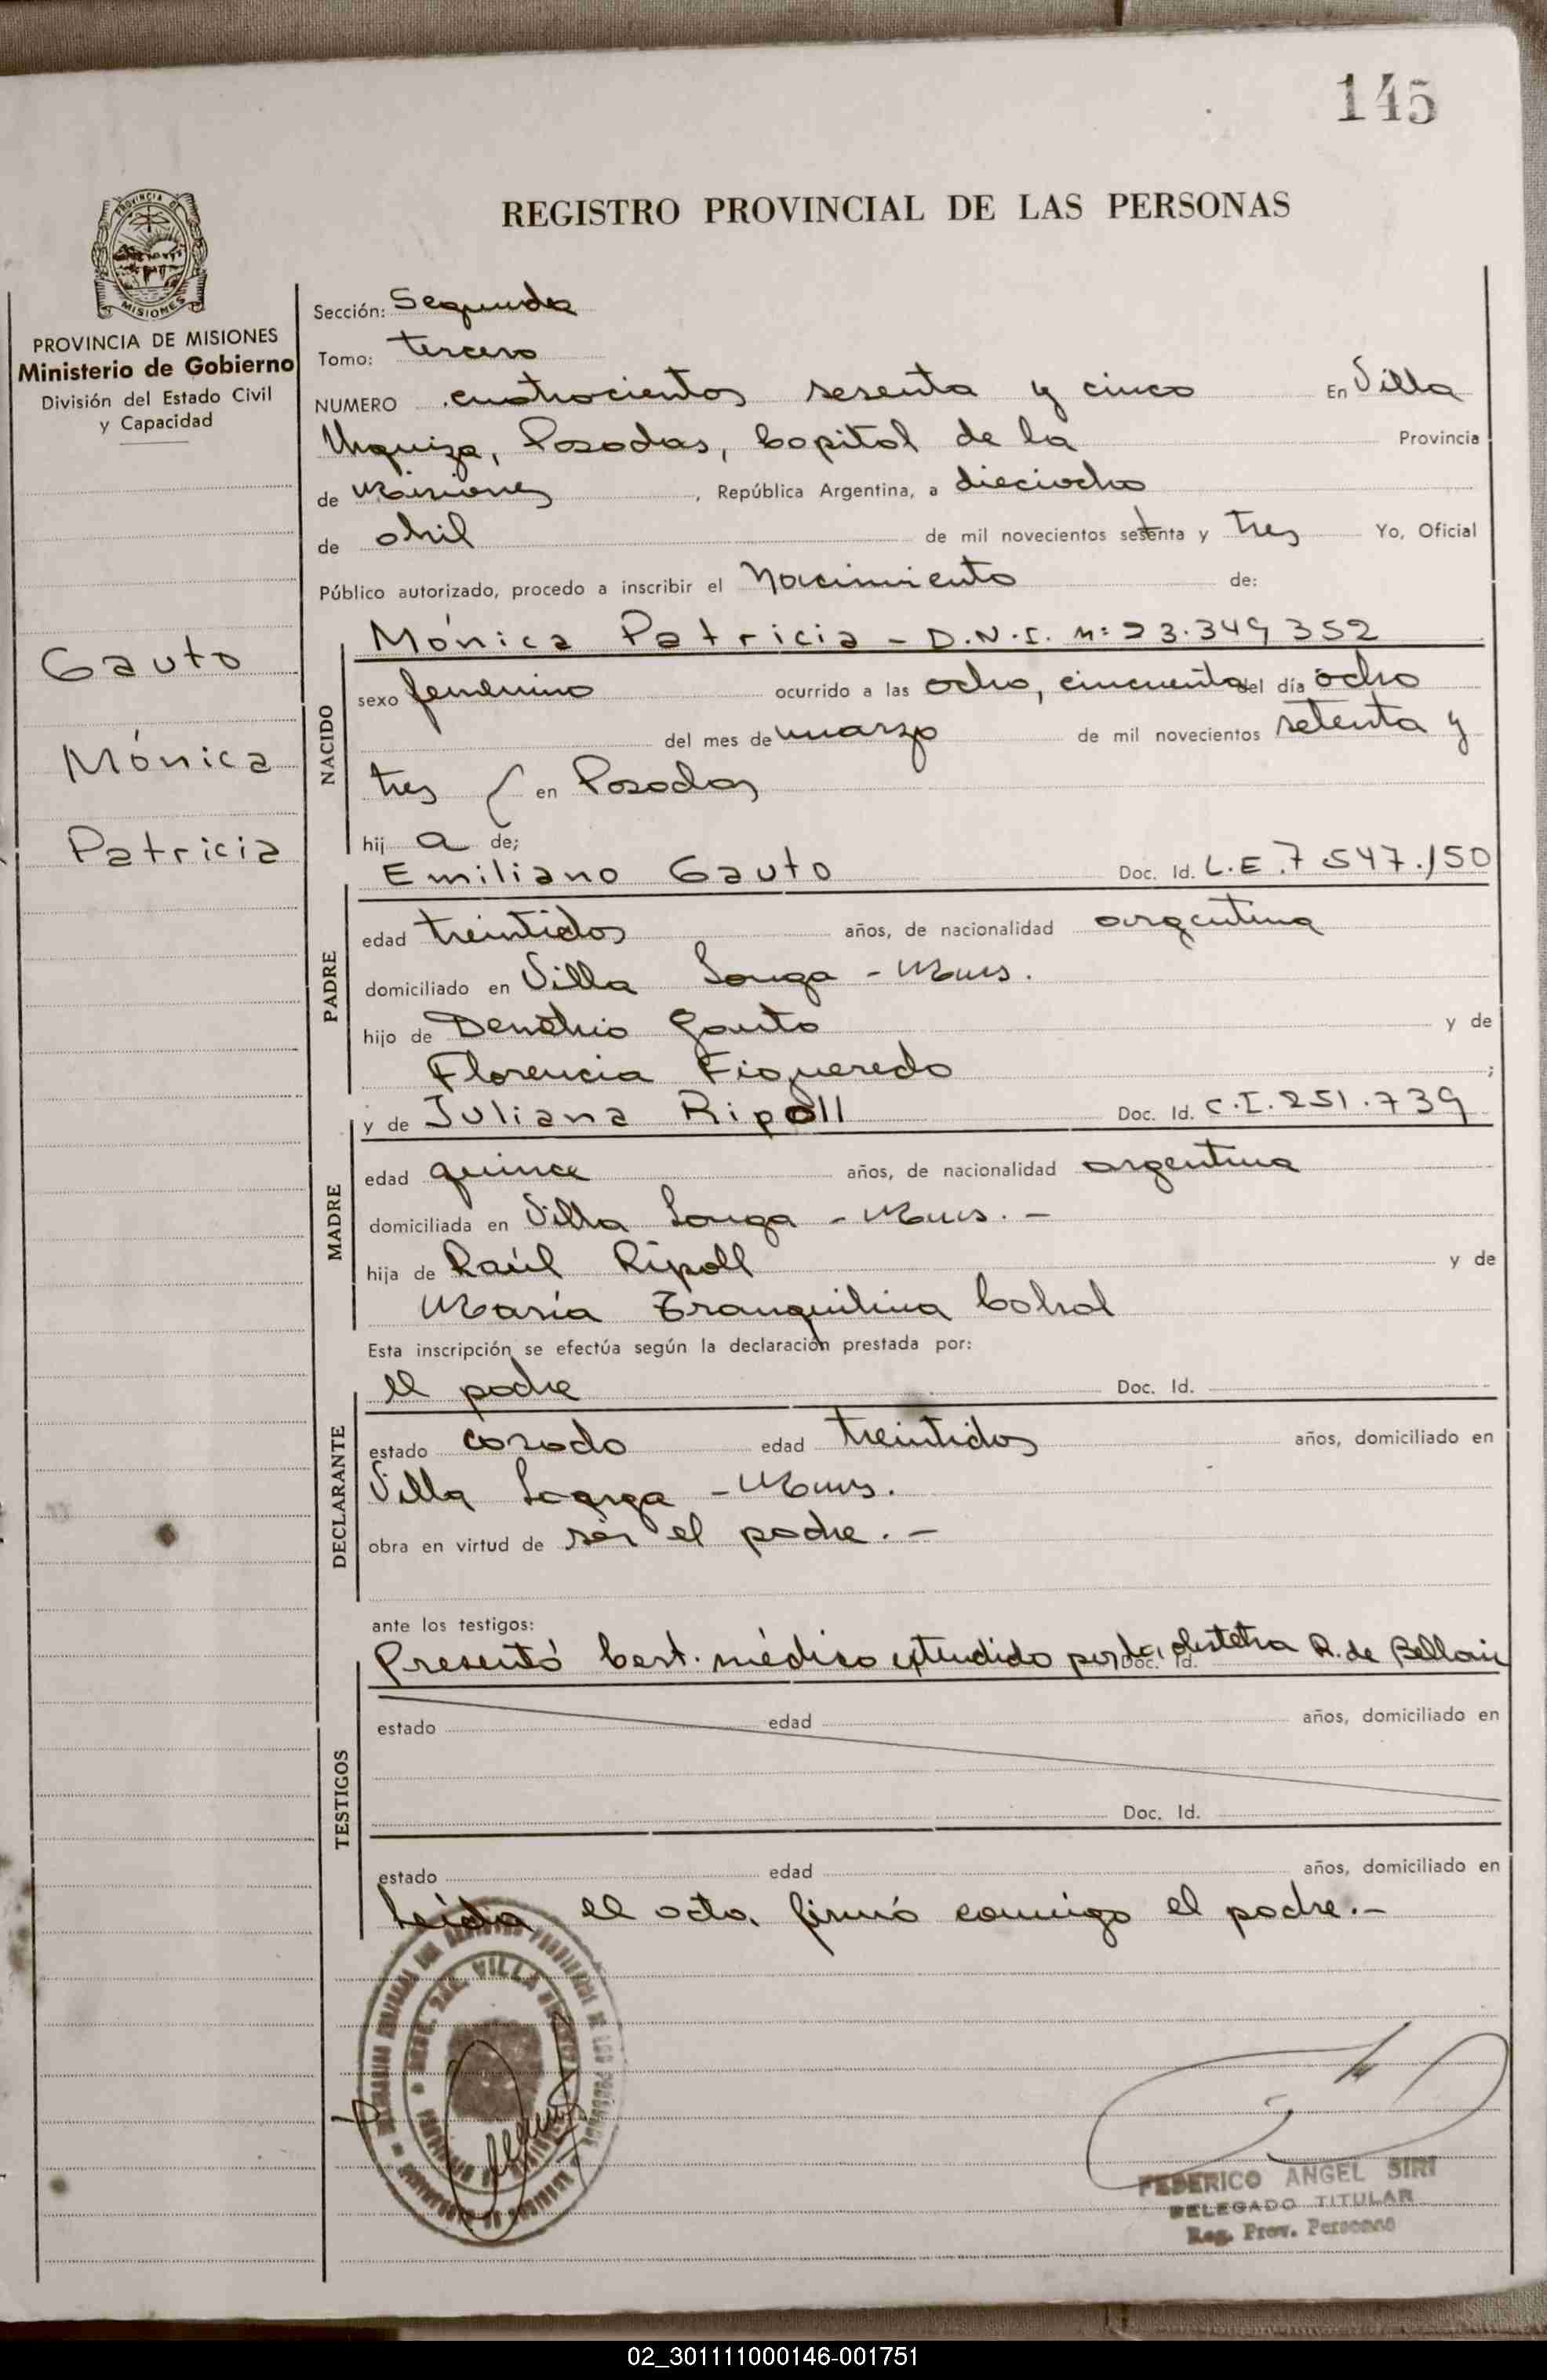 145
REGISTRO PROVINCIAL DE LAS PERSONAS
PROVINCIA DE MISIONES
MISIONES
PROVINCIA DE MISIONES
Ministerio de Gobierno
División del Estado Civil
y Capacidad
Gauto
Mónica
Patricia
Sección: Segunda
Tomo: tercero
NUMERO cuatrocientos sesenta y cinco En Villa
Urquiza, Posadas, Capital de la Provincia
de Misiones, República Argentina, a dieciocho
de abril de mil novecientos setenta y tres Yo, Oficial
Público autorizado, procedo a inscribir el Nacimiento de:
NACIDO
Mónica Patricia - D.N.I. Nº 23.349352
sexo femenino ocurrido a las ocho, cincuenta del día ocho
del mes de marzo de mil novecientos setenta y
tres en Posadas
hij a de;
PADRE
Emiliano Gauto Doc. Id. L.E. 7.547.150
edad treintidos años, de nacionalidad argentina
domiciliado en Villa Longa - Mnes.
hijo de Demetrio Gauto y de
Florencia Figueredo ;
MADRE
y de Juliana Ripoll Doc. Id. C.I. 251.739
edad quince años, de nacionalidad argentina
domiciliada en Villa Longa - Mnes. -
hija de Raúl Ripoll y de
María Tranquilina Cabral
Esta inscripción se efectúa según la declaración prestada por:
DECLARANTE
el padre Doc. Id.
estado casado edad treintidos años, domiciliado en
Villa - Mnes.
obra en virtud de ser el padre. -
ante los testigos:
TESTIGOS
Presentó Cert. médico extendido por la obstetra R. de Doc. Id.
estado edad años, domiciliado en
Doc. Id.
estado edad años, domiciliado en
Leída el acta, firmó conmigo el padre. -
VILLA
FEDERICO ANGEL SIRI
DELEGADO TITULAR
Reg. Prov. Personas
02_301111000146-001751